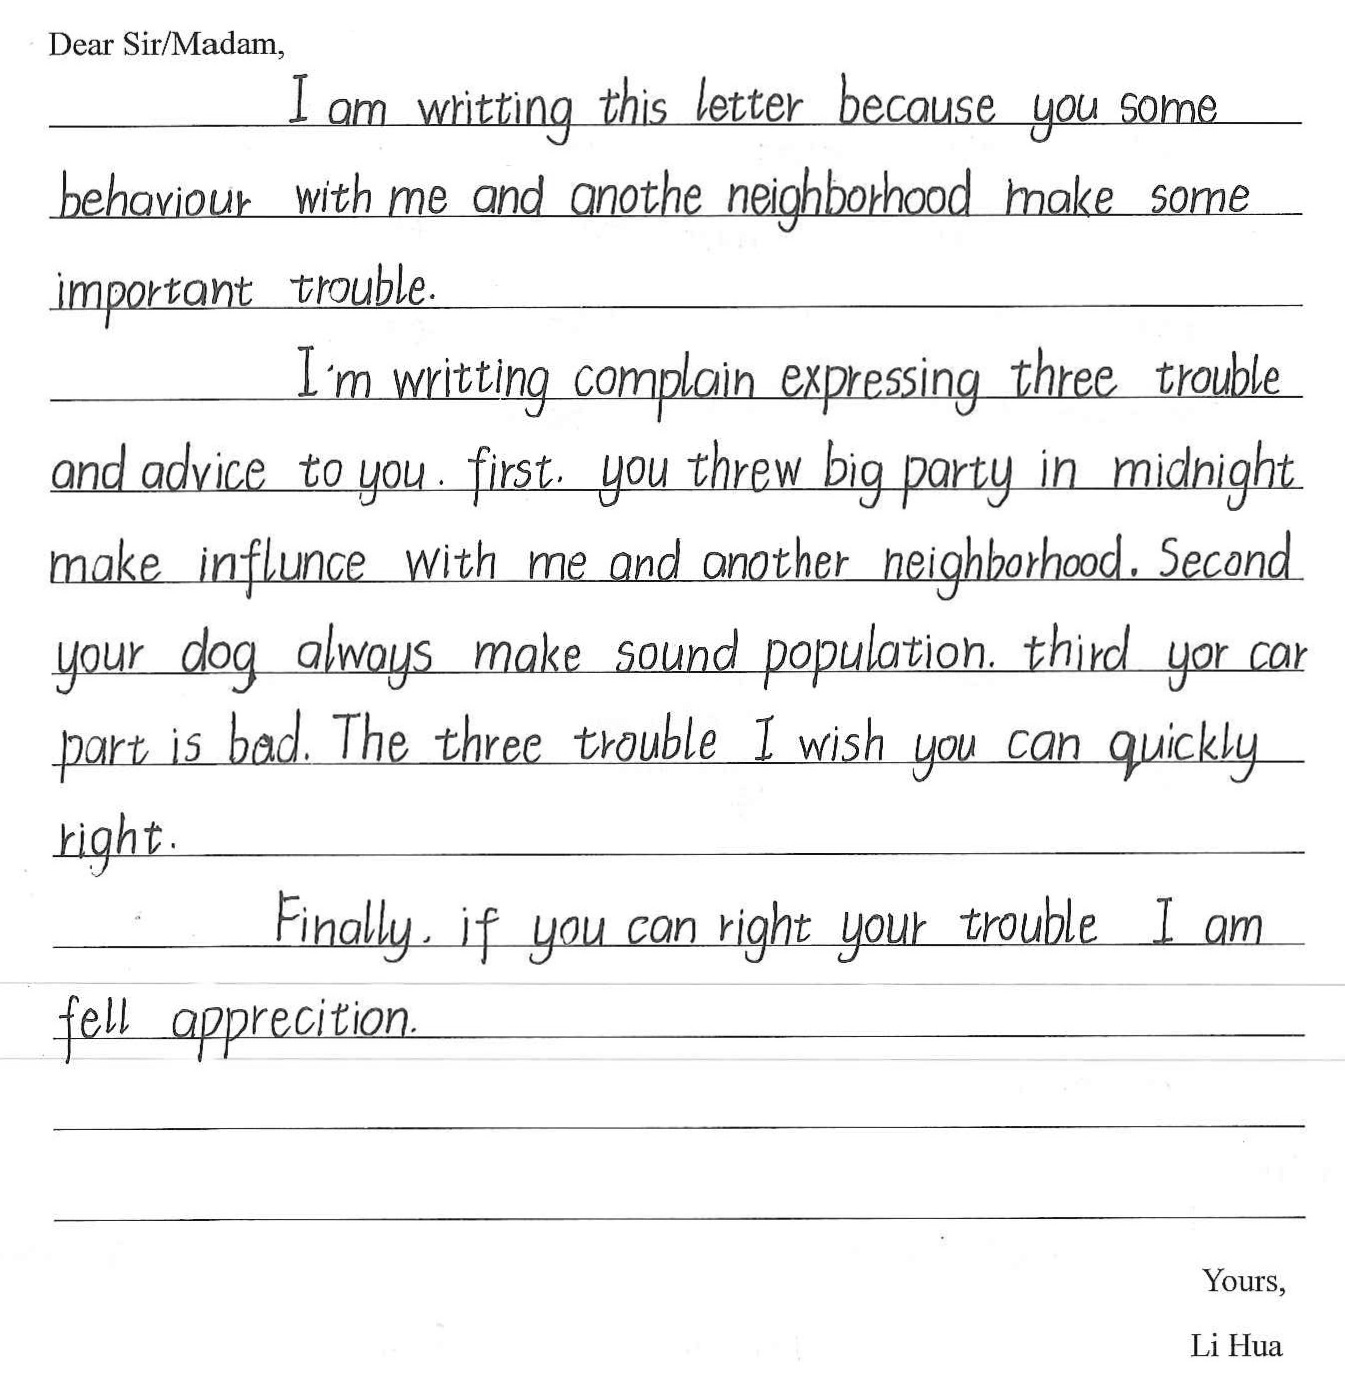 Dear Sir/Madam,
I am writting this letter because you some
behaviour with me and anothe neighborhood make some
important trouble.
I'm writting complain expressing three trouble
and advice to you. first. you threw big party in midnight
make influnce with me and another neighborhood. Second
your dog always make sound population. third yor car
part is bad. The three trouble I wish you can quickly
right.
Finally. if you can right your trouble I am
fell apprecition.
Yours,
Li Hua